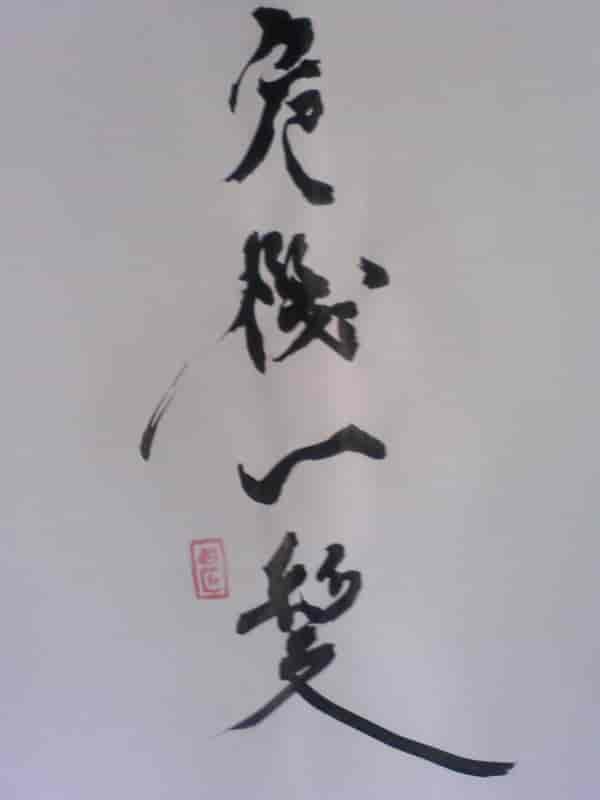 危機一髪